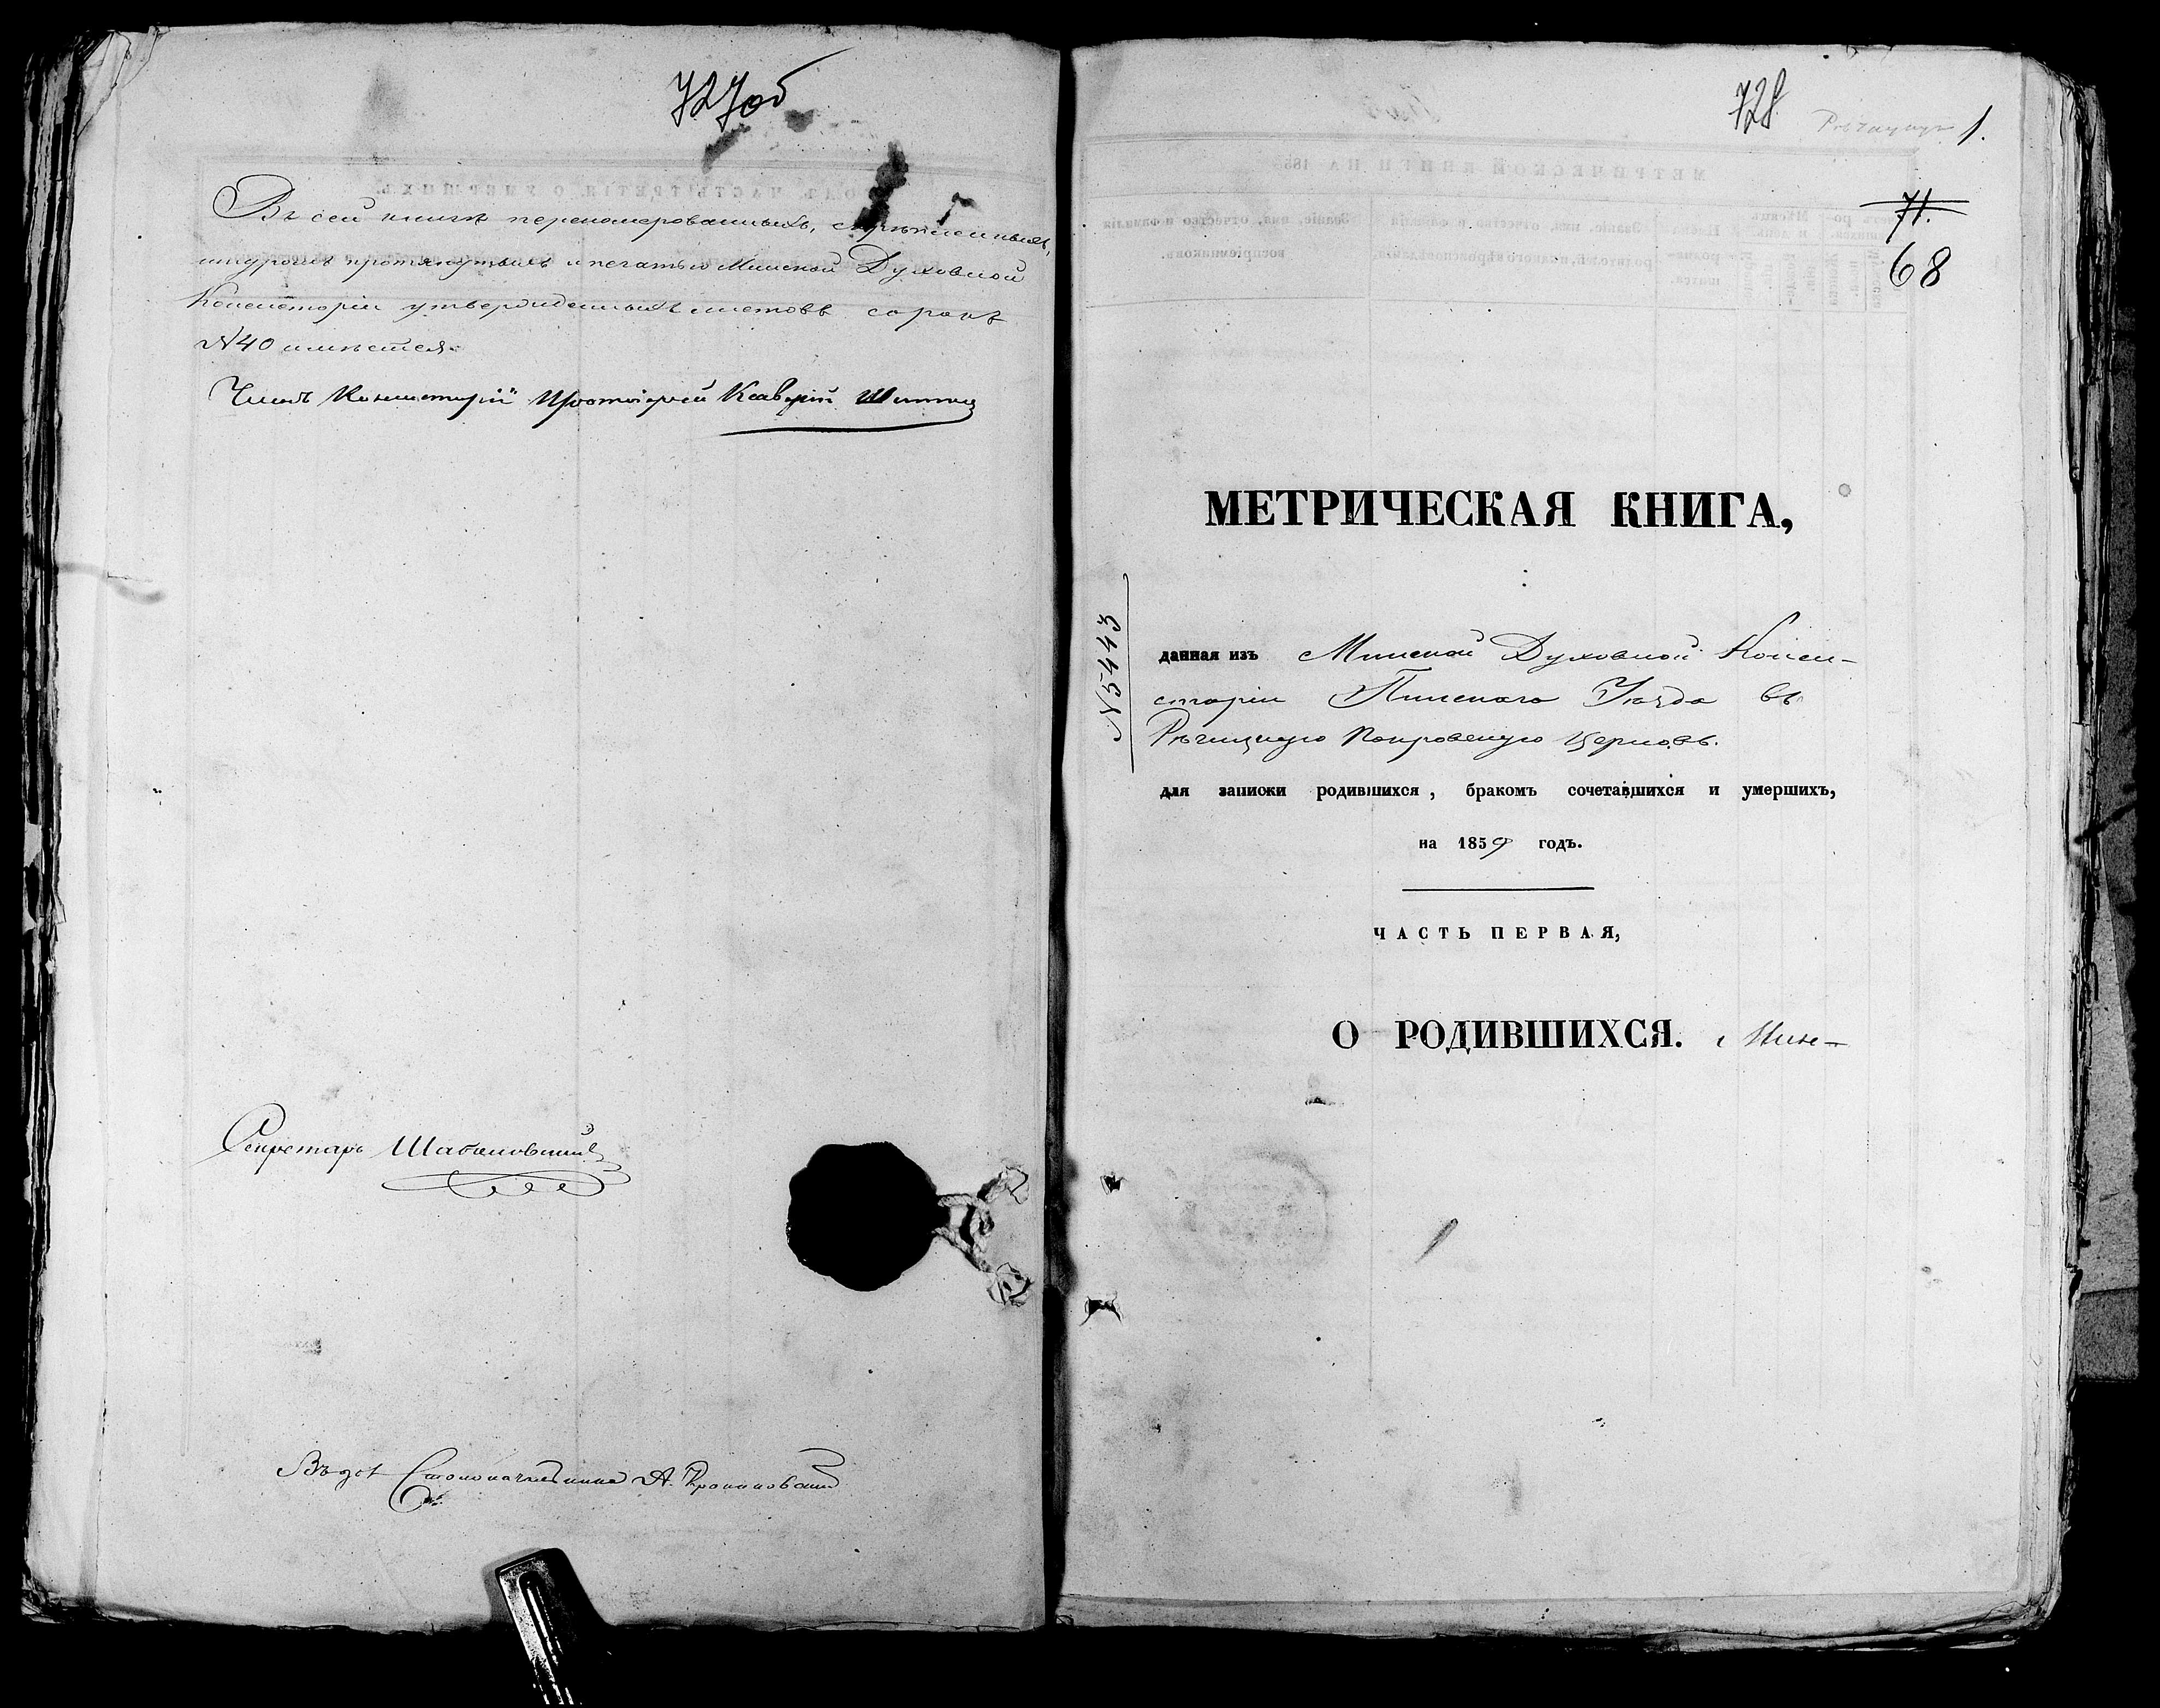 727об
Въ сей книгѣ переномерованныхъ, скрѣпленныхъ,
шнуромъ протянутыхъ и печатью Минской Духовной
Консисторіи утвержденныхъ листовъ сорокъ
N40 имѣется.
Членъ Консисторіи Протоіерей
Секретарь
Столоначальника А.
728
1.
71.
68
МЕТРИЧЕСКАЯ КНИГА,
N5443
данная изъ Минской Духовной Конси-
сторіи Пинскаго Уѣзда въ
Рѣчицкую Покровскую Церковь.
для записки родившихся, бракомъ сочетавшихся и умершихъ,
на 1859 годъ.
ЧАСТЬ ПЕРВАЯ,
О РОДИВШИХСЯ.